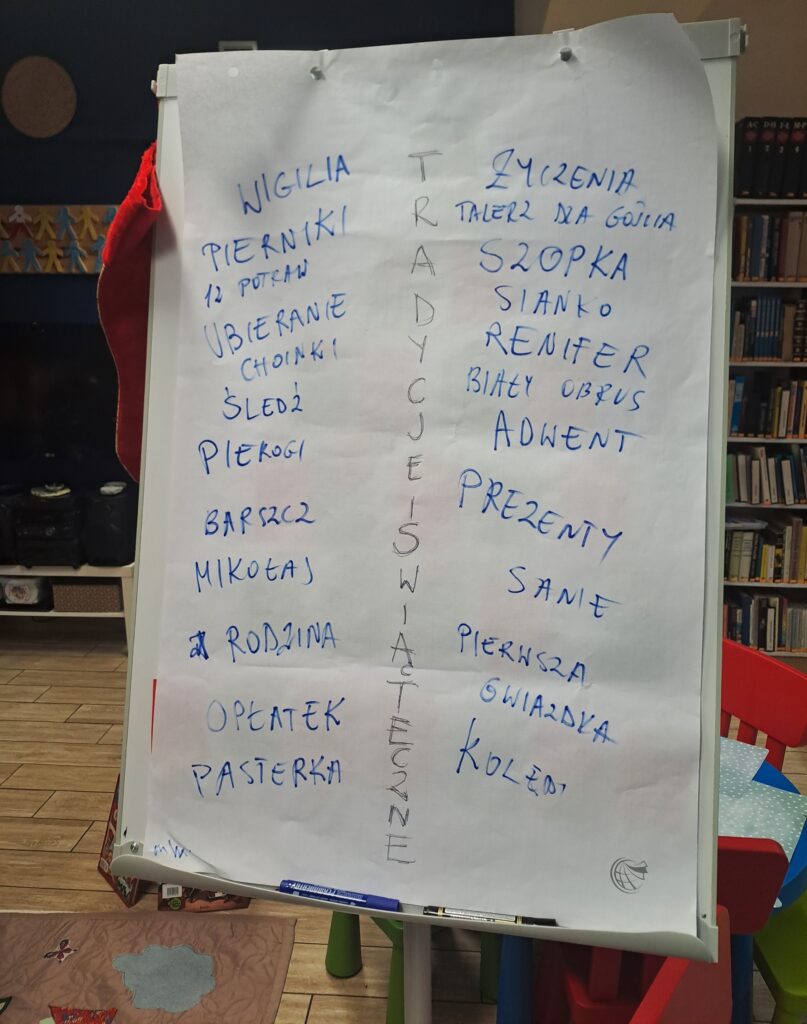 WIGILIA
PIERNIKI
12 POTRAW
UBIERANIE
CHOINKI
ŚLEDŹ
PIEROGI
BARSZCZ
MIKOŁAJ
RODZINA
OPŁATEK
PASTERKA
TRADYCJEISWIĄTECZNE
ŻYCZENIA
TALERZ DLA GOŚCIA
SZOPKA
SIANKO
RENIFER
BIAŁY OBRUS
ADWENT
PREZENTY
SANIE
PIERWSZA
GWIAZDKA
KOLĘDY